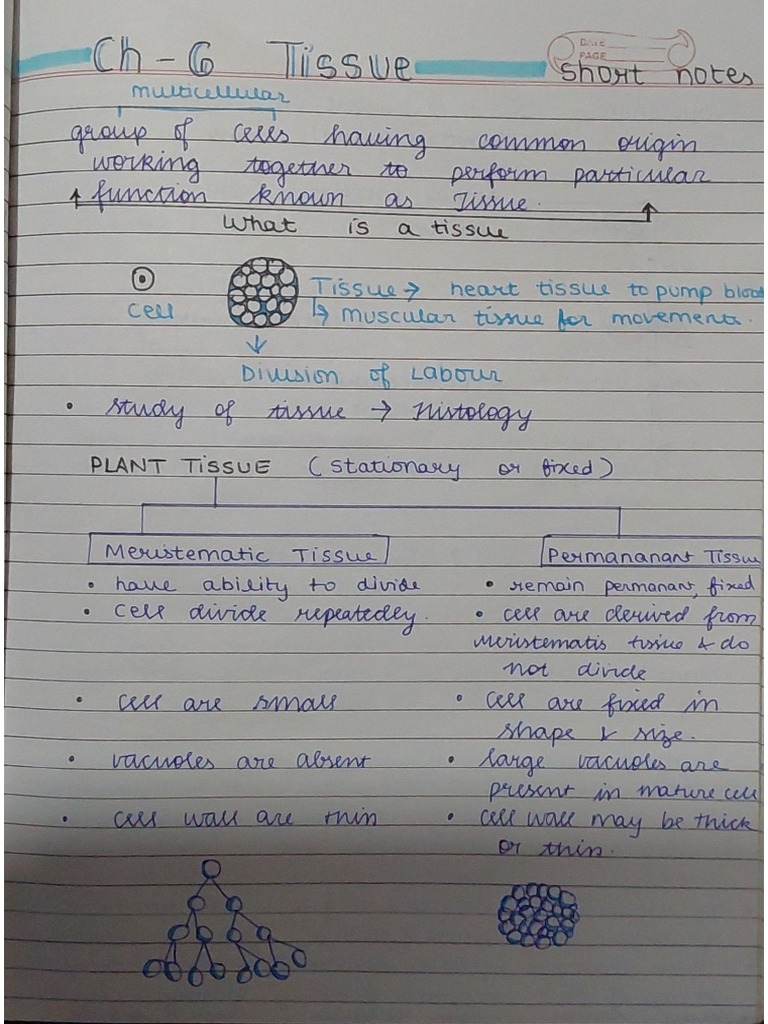 Ch - 6 Tissue
DATE
PAGE
short notes
multicellular
group of cells having common origin
working together to perform particular
function known as Tissue.
What is a tissue
cell
Tissue → heart tissue to pump blood
↳ muscular tissue for movements.
Division of Labour
• study of tissue → Histology
PLANT TISSUE (stationary or fixed)
Meristematic Tissue
• have ability to divide
• cell divide repeatedly.
• cell are small
• vacuoles are absent
• cell wall are thin
Permananant Tissue
• remain permanant, fixed
• cell are derived from
Meristematis tissue & do
not divide
• cell are fixed in
shape & size.
• large vacuoles are
present in mature cell
• cell wall may be thick
or thin.